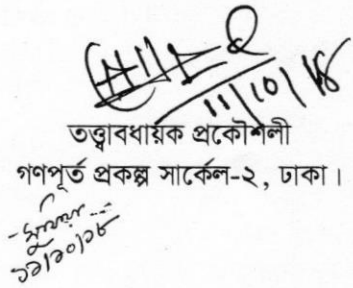 11/10/18
তত্ত্বাবধায়ক প্রকৌশলী
গণপূর্ত প্রকল্প সার্কেল-২, ঢাকা।
১১/১০/১৮